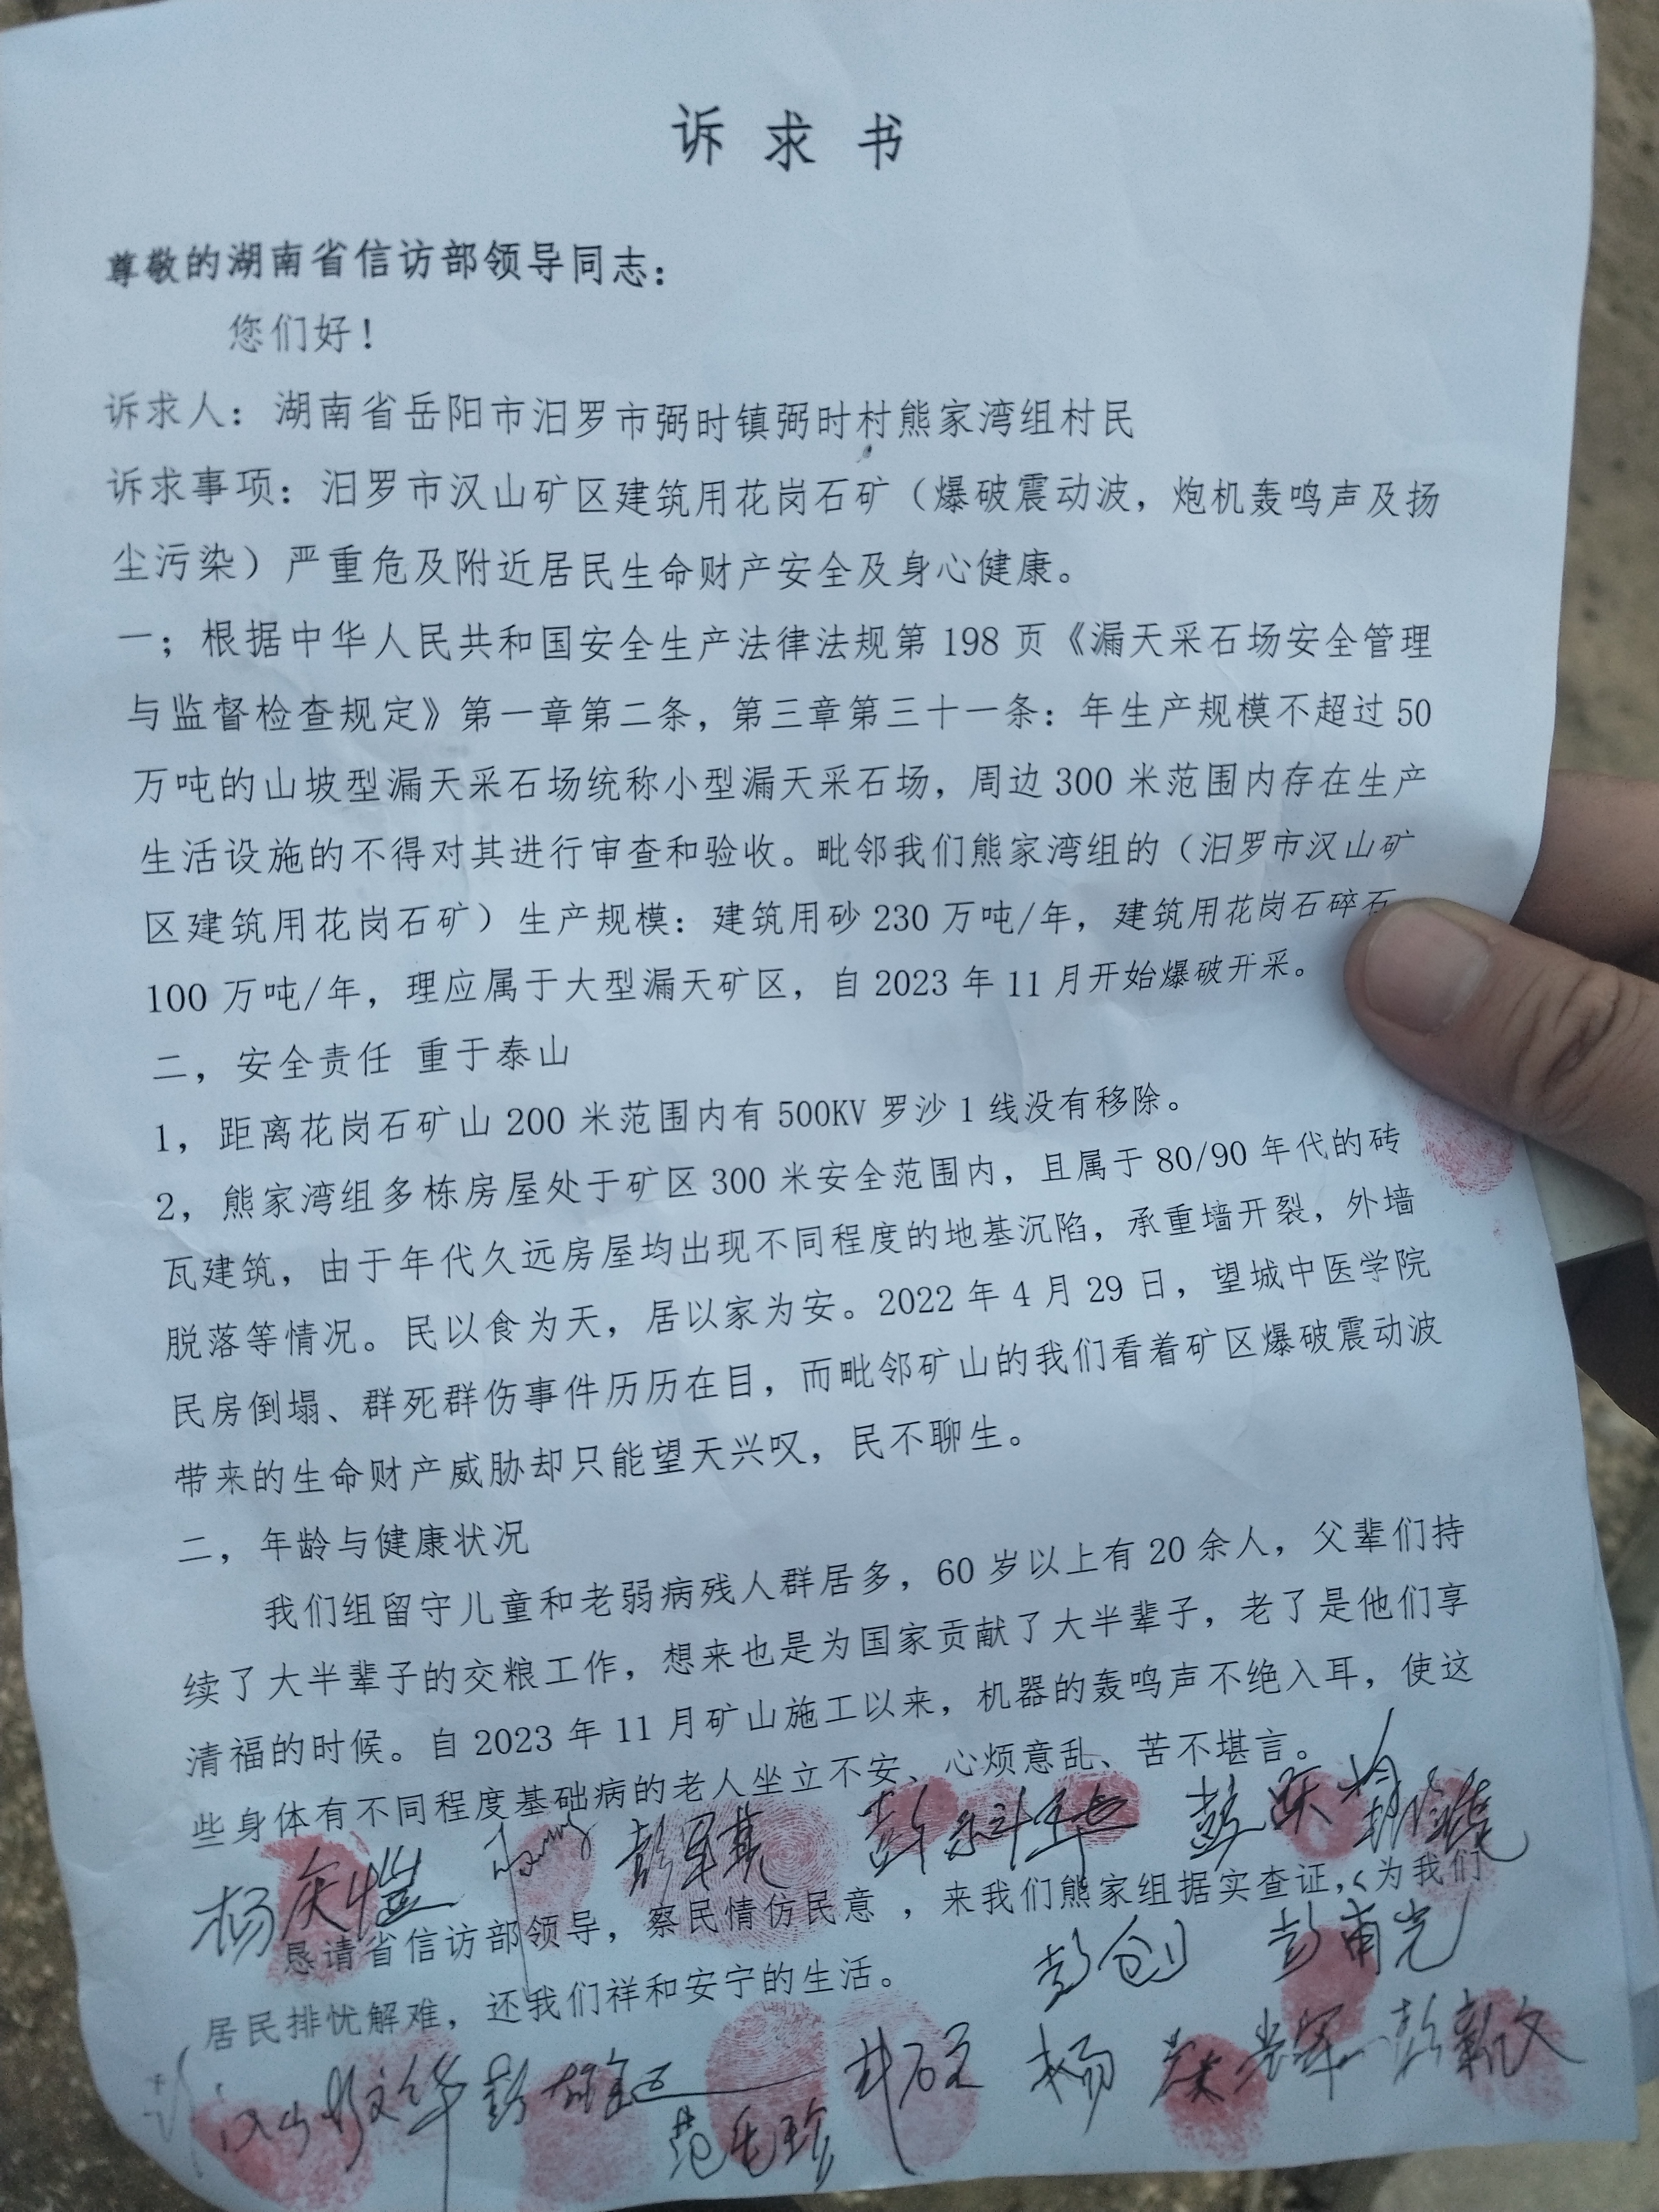 诉求书
尊敬的湖南省信访部领导同志：
您们好！
诉求人：湖南省岳阳市汨罗市弼时镇弼时村熊家湾组村民
诉求事项：汨罗市汉山矿区建筑用花岗石矿（爆破震动波，炮机轰鸣声及扬
尘污染）严重危及附近居民生命财产安全及身心健康。
一；根据中华人民共和国安全生产法律法规第 198 页《漏天采石场安全管理
与监督检查规定》第一章第二条，第三章第三十一条：年生产规模不超过 50
万吨的山坡型漏天采石场统称小型漏天采石场，周边 300 米范围内存在生产
生活设施的不得对其进行审查和验收。毗邻我们熊家湾组的（汨罗市汉山矿
区建筑用花岗石矿）生产规模：建筑用砂 230 万吨/年，建筑用花岗石碎石
100 万吨/年，理应属于大型漏天矿区，自 2023 年 11 月开始爆破开采。
二，安全责任 重于泰山
1，距离花岗石矿山 200 米范围内有 500KV 罗沙 1 线没有移除。
2，熊家湾组多栋房屋处于矿区 300 米安全范围内，且属于 80/90 年代的砖
瓦建筑，由于年代久远房屋均出现不同程度的地基沉陷，承重墙开裂，外墙
脱落等情况。民以食为天，居以家为安。2022 年 4 月 29 日，望城中医学院
民房倒塌、群死群伤事件历历在目，而毗邻矿山的我们看着矿区爆破震动波
带来的生命财产威胁却只能望天兴叹，民不聊生。
二，年龄与健康状况
我们组留守儿童和老弱病残人群居多，60 岁以上有 20 余人，父辈们持
续了大半辈子的交粮工作，想来也是为国家贡献了大半辈子，老了是他们享
清福的时候。自 2023 年 11 月矿山施工以来，机器的轰鸣声不绝入耳，使这
些身体有不同程度基础病的老人坐立不安、心烦意乱、苦不堪言。
恳请省信访部领导，察民情仿民意，来我们熊家组据实查证，为我们
彭创 彭甫光
居民排忧解难，还我们祥和安宁的生活。